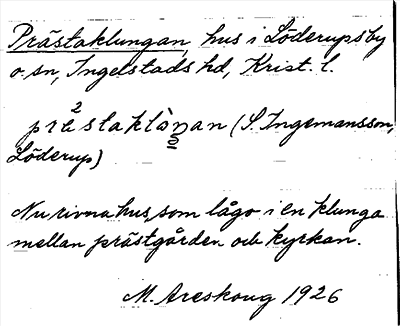 Prästaklungan, hus i Löderups by
o. sn, Ingelstads hd, Krist. l.
præ²staklàŋan (S. Ingemansson,
Löderup)
Nu rivna hus, som lågo i en klunga
mellan prästgården och kyrkan.
M. Areskoug 1926